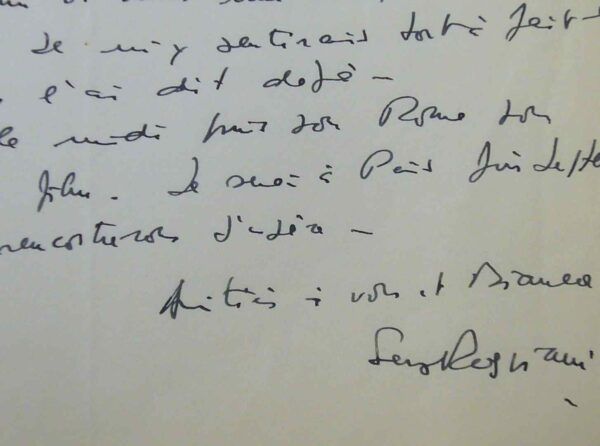 Je m'y sentirais tout à fait
l'ai dit déjà –
midi puis Rome
film. Je serai à Paris fin Sept
rencontrerons d'ici là –
Amitiés à vous et Bianca
Serge Reggiani